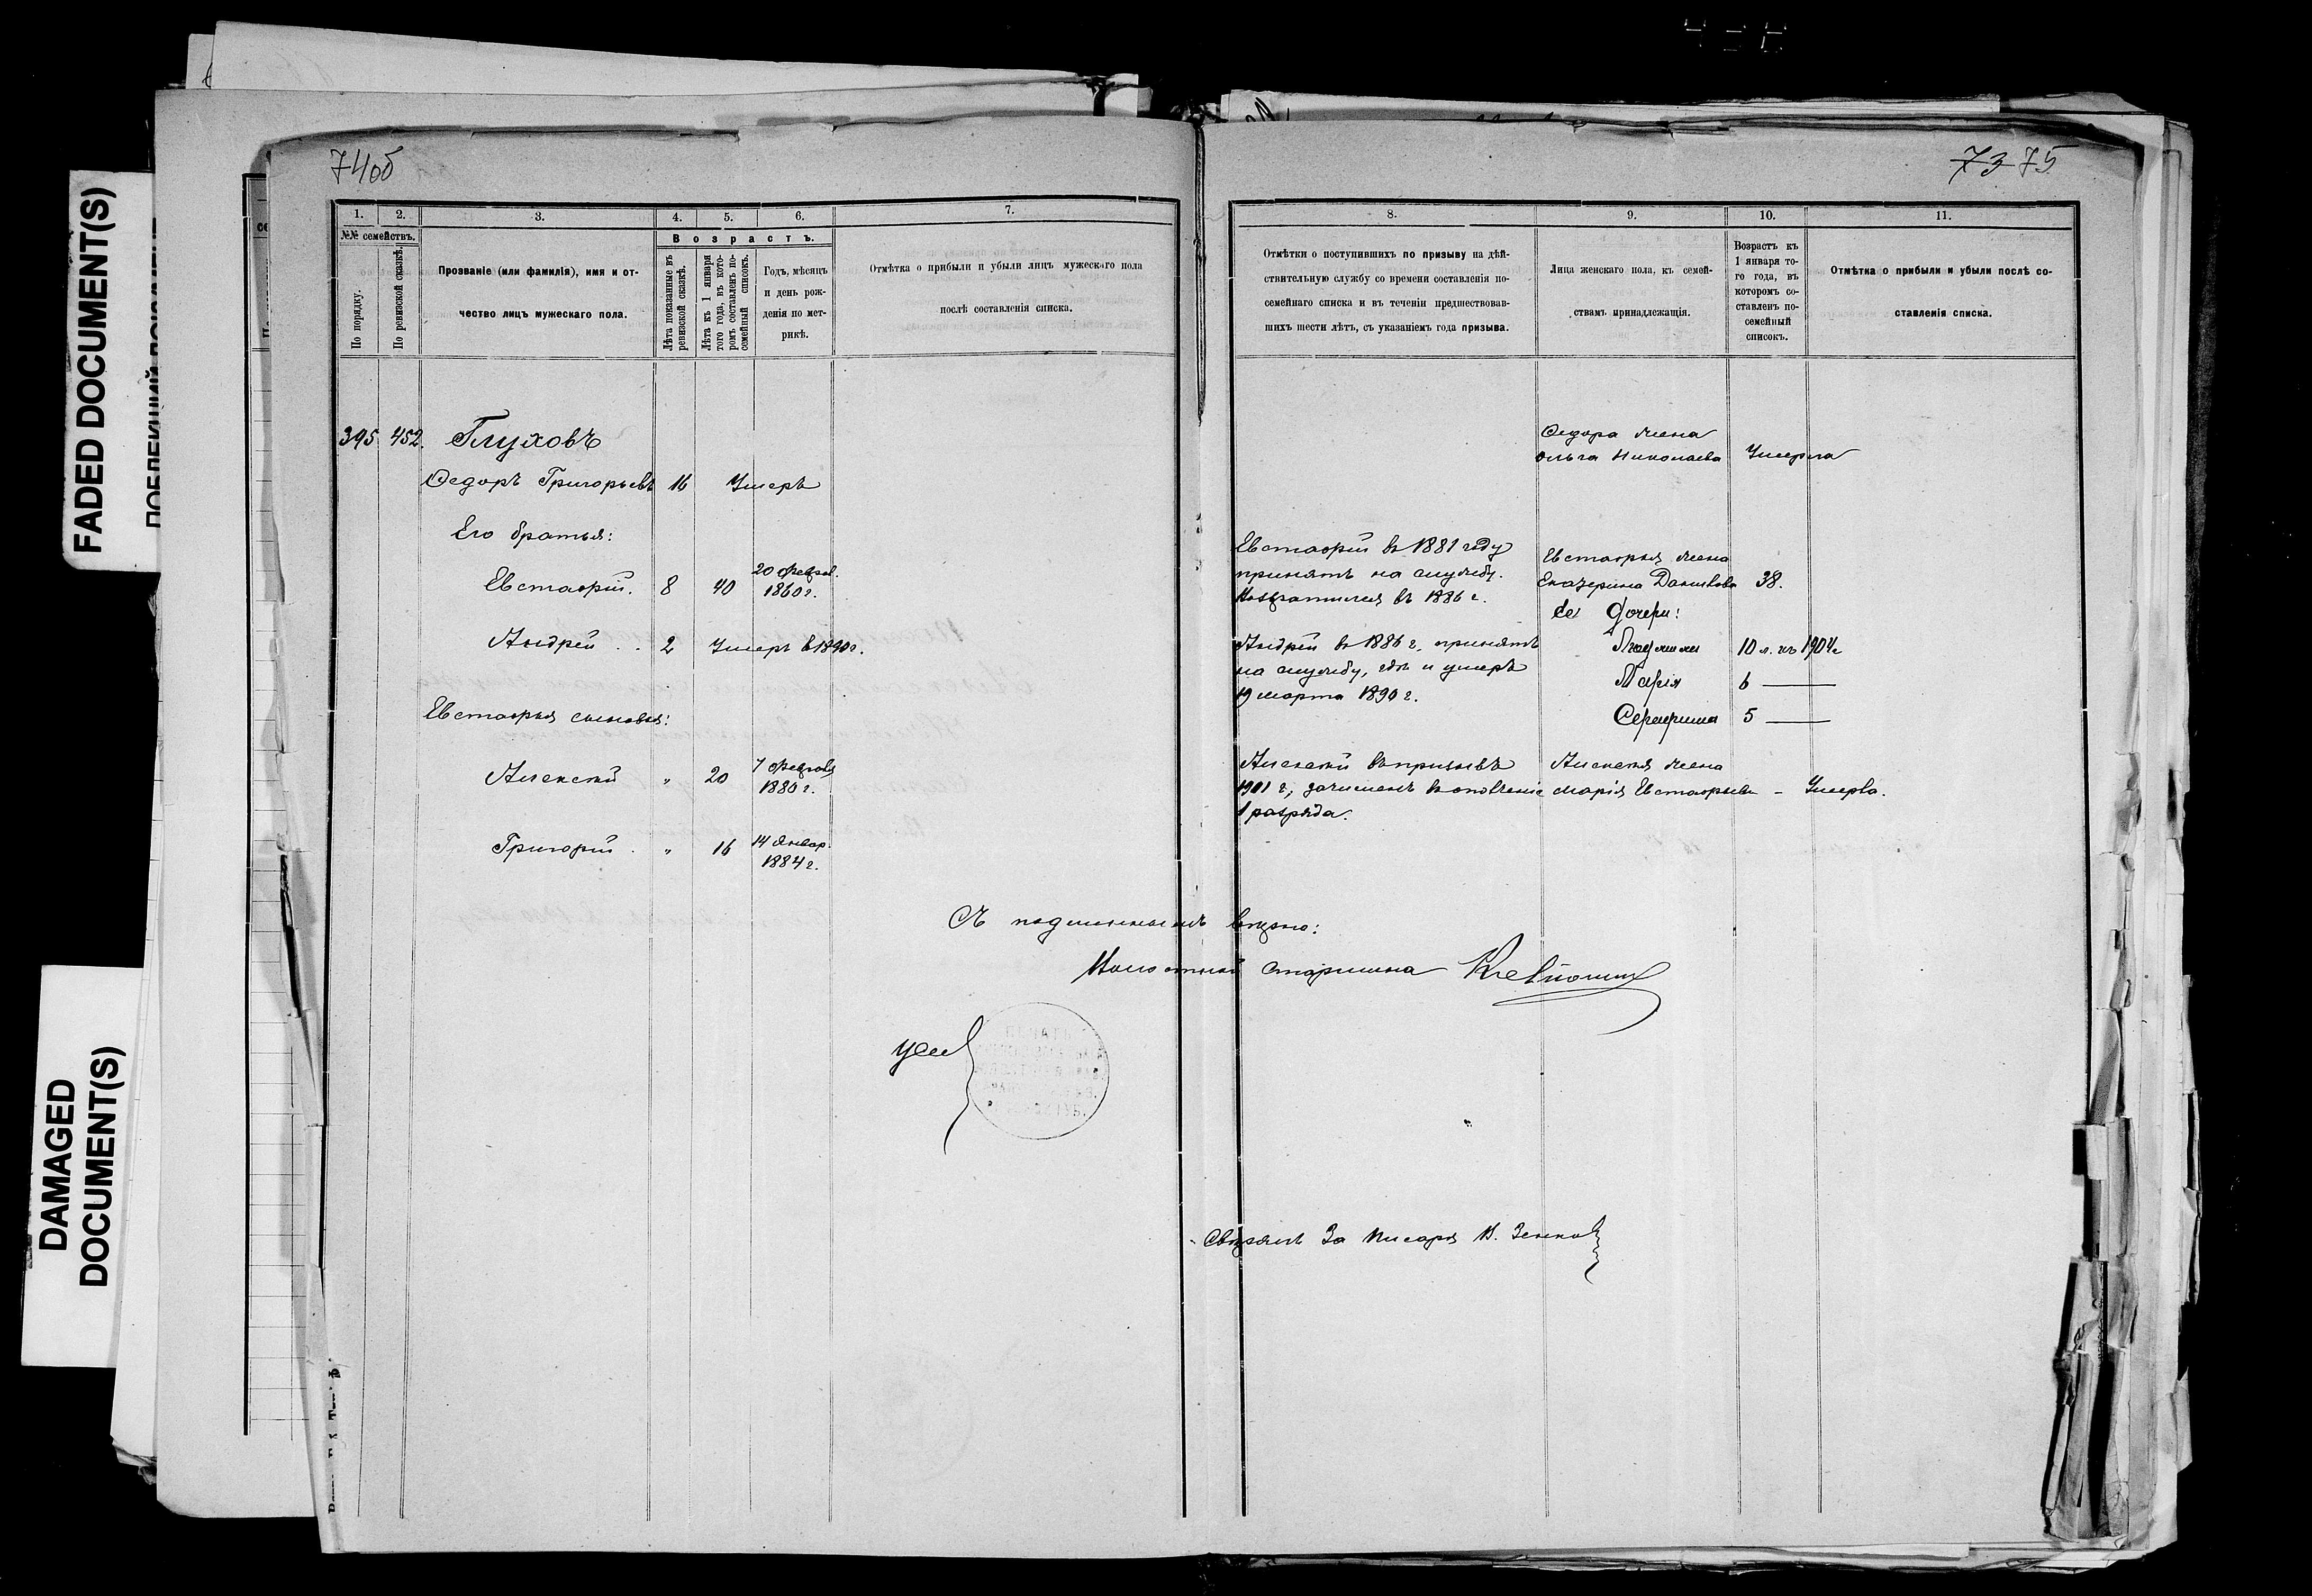 FADED DOCUMENT(S)
DAMAGED
DOCUMENT(S)
74об
1. 2. 3. 4. 5. 6. 7.
№№ семействъ.
По порядку.
По ревизской сказкѣ.
Прозваніе (или фамилія), имя и от-
чество лицъ мужескаго пола.
Возрастъ.
Лѣта показанные въ
ревизской сказкѣ.
Лѣта къ 1 января
того года, въ кото-
ромъ составленъ по-
семейный списокъ.
Годъ, мѣсяцъ
и день рож-
денія по мет-
рикѣ.
Отмѣтка о прибыли и убыли лицъ мужескаго пола
послѣ составленія списка.
395 452. Глуховъ
Ѳедоръ Григорьевъ 16 Умеръ
Его братья:
Евстафій. 8 40 20 феврал.
1860 г.
Андрей . . 2 Умеръ в 1890 г.
Евстафья сыновья:
Алексѣй " 20 7 февраля
1880 г.
Григорій . " 16 14 Январ.
1884 г.
73 75
8. 9. 10. 11.
Отмѣтки о поступившихъ по призыву на дѣй-
ствительную службу со времени составленія по-
семейнаго списка и въ теченіи предшествовав-
шихъ шести лѣтъ, съ указаніемъ года призыва.
Лица женскаго пола, къ семей-
ствамъ принадлежащія.
Возрастъ къ
1 января то-
го года, въ
которомъ со-
ставленъ по-
семейный
списокъ.
Отмѣтка о прибыли и убыли послѣ со-
ставленія списка.
Ѳедора жена
Ольга Николаева Умерла
Евстафій въ 1881 году
принятъ на службу.
Возвратился въ 1886 г.
Евстафья жена
Екатерина Данилова 38.
Ее дочери:
Андрей въ 1886 г. принятъ
на службу, гдѣ и умеръ
19 марта 1890 г.
10 л. къ 1904 г
Марія 6 —
Серафима 5 —
Алексѣй въ призывъ
1901 г., зачисленъ въ ополченіе
1 разряда.
Алексѣя жена
Марія Евстафьева - Умерла.
Съ подлиннымъ вѣрно:
Волостной старшина
Свѣрялъ За Писаря